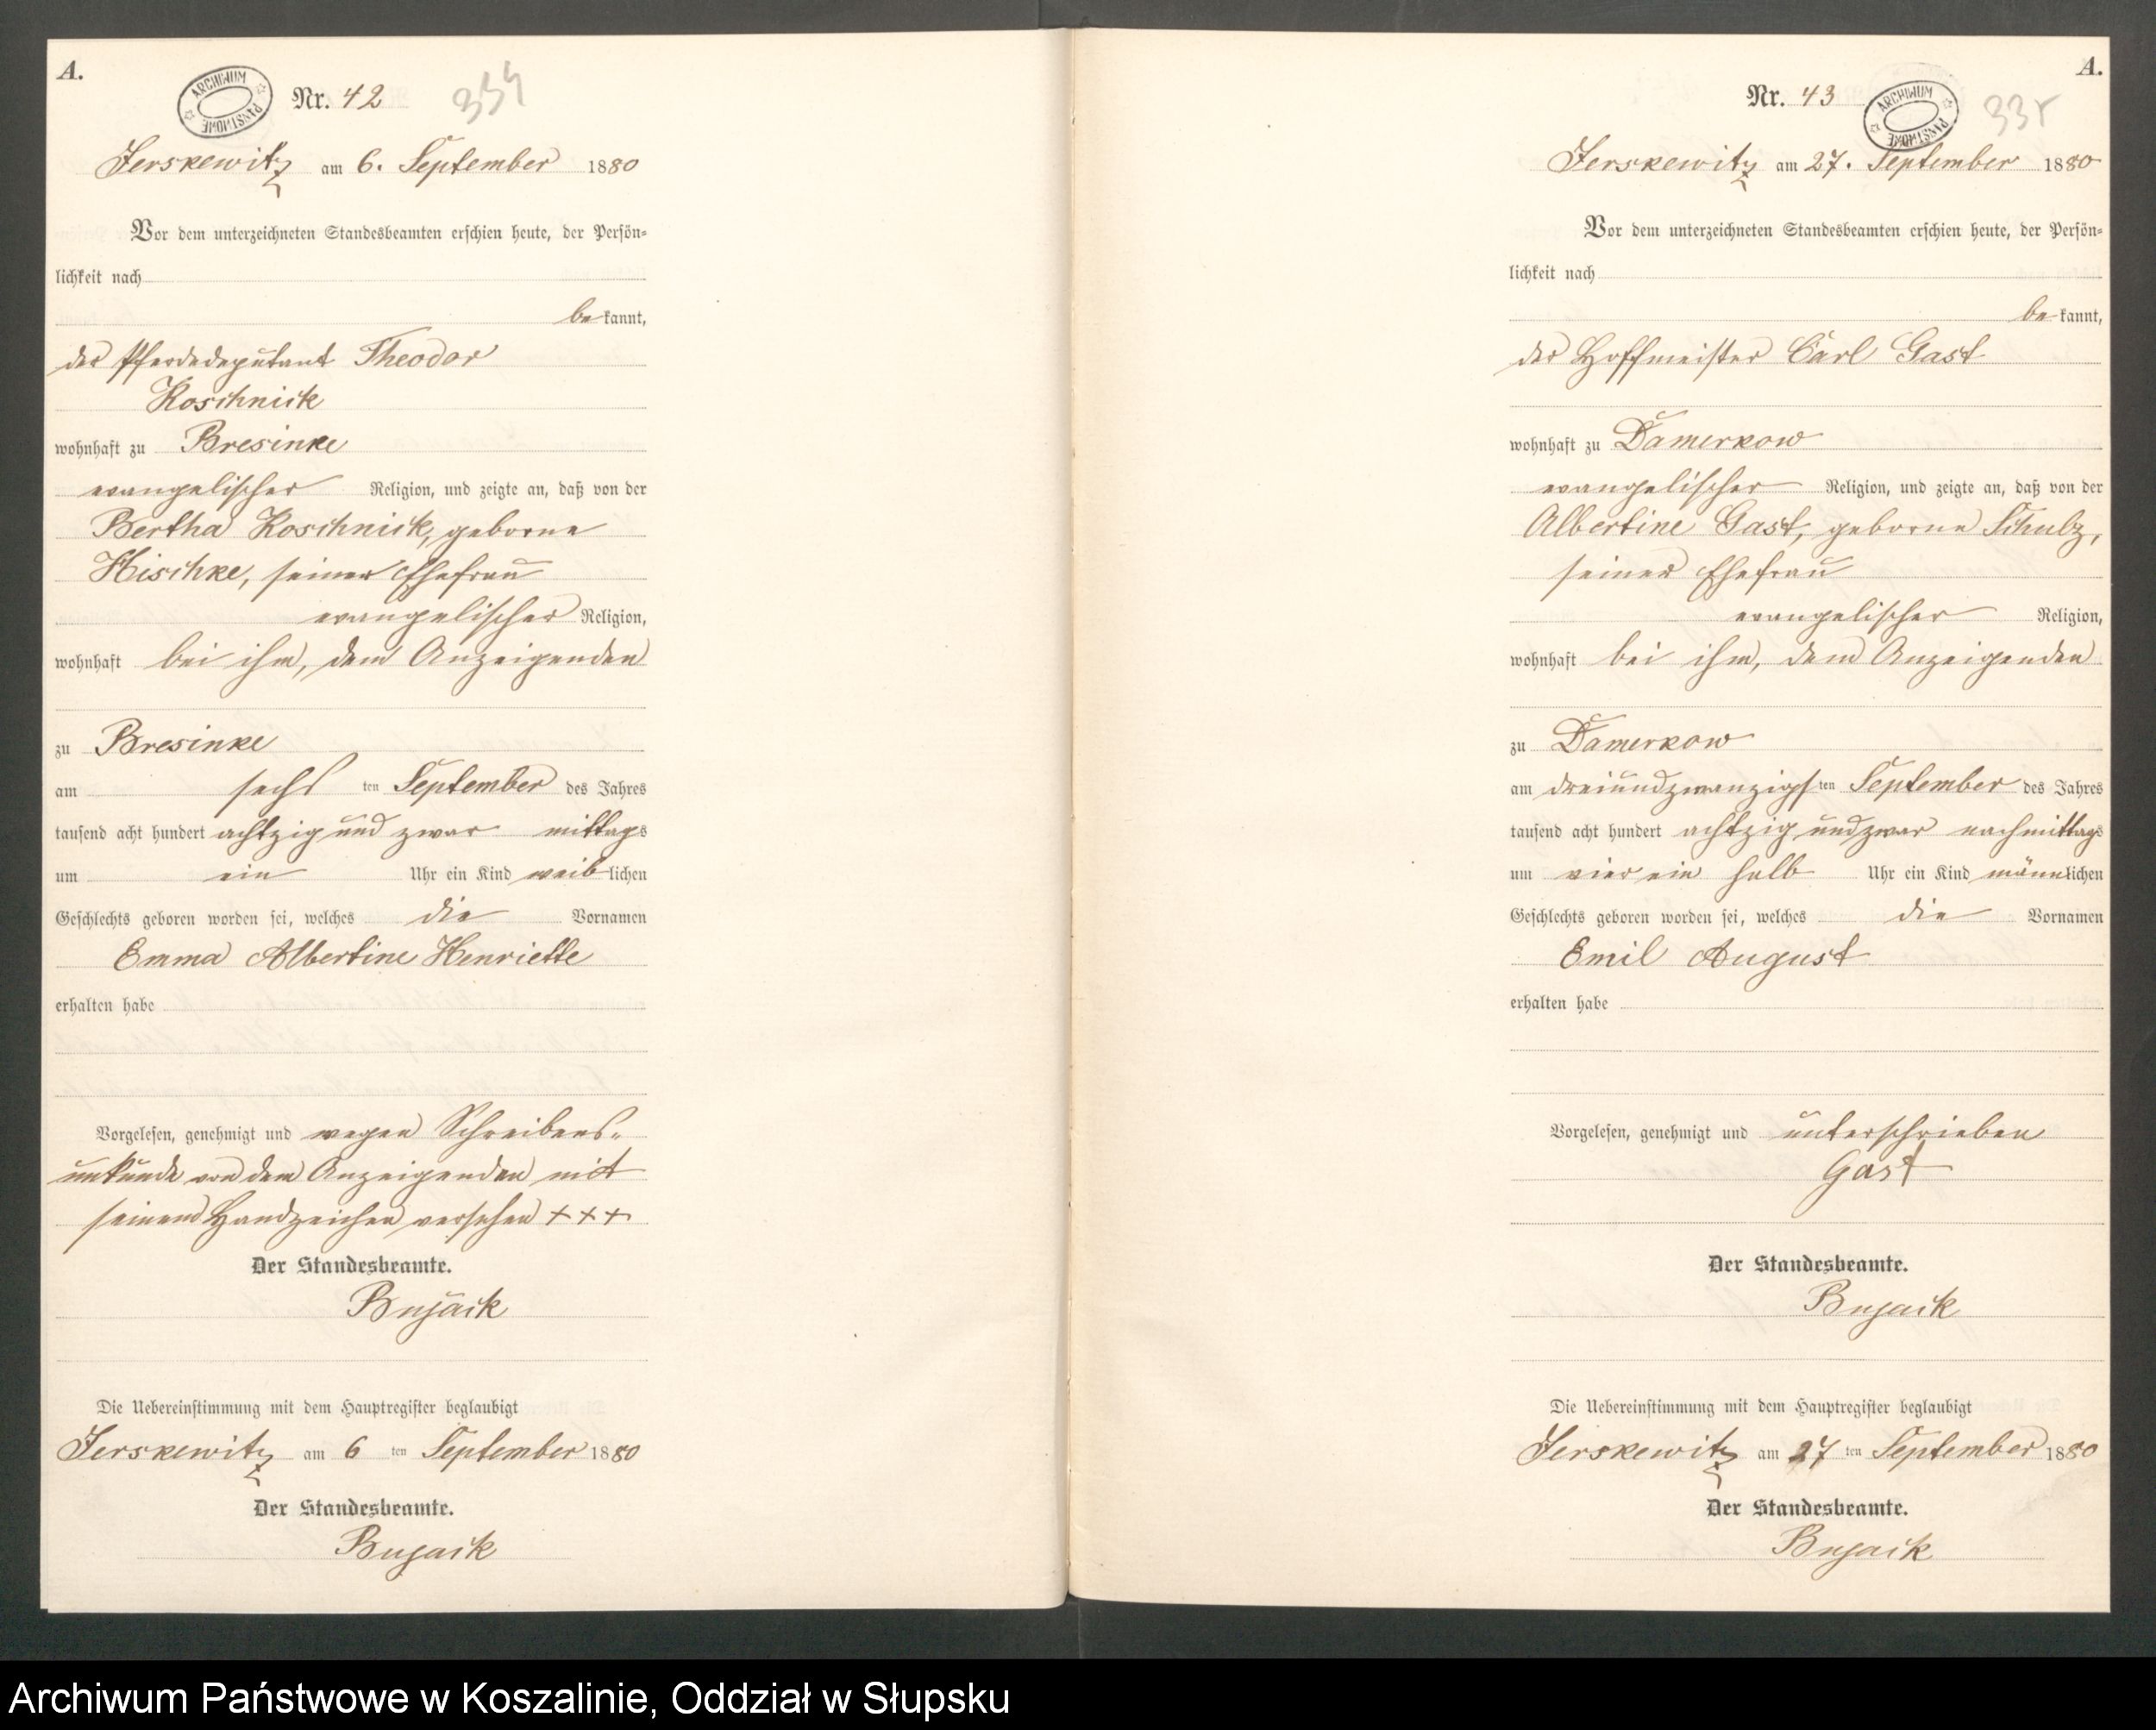 A.
ARCHIWUM PAŃSTWOWE
Nr. 42
334
Jerskewitz am 6. September 1880
Vor dem unterzeichneten Standesbeamten erschien heute, der Persön=
lichkeit nach
be kannt,
der Pferdedeputant Theodor
Koschnick
wohnhaft zu Bresinke
evangelischer Religion, und zeigte an, daß von der
Bertha Koschnick, geborne
Hischke, seiner Ehefrau
evangelischer Religion,
wohnhaft bei ihm, dem Anzeigenden
zu Bresinke
am sechs ten September des Jahres
tausend acht hundert achtzig und zwar mittags
um ein Uhr ein Kind weib lichen
Geschlechts geboren worden sei, welches die Vornamen
Emma Albertine Henriette
erhalten habe
Vorgelesen, genehmigt und wegen Schreibens=
unkunde von dem Anzeigenden mit
seinem Handzeichen versehen +++
Der Standesbeamte.
Bujack
Die Uebereinstimmung mit dem Hauptregister beglaubigt
Jerskewitz am 6 ten September 1880
Der Standesbeamte.
Bujack
A.
Nr. 43
ARCHIWUM PAŃSTWOWE
335
Jerskewitz am 27. September 1880
Vor dem unterzeichneten Standesbeamten erschien heute, der Persön=
lichkeit nach
be kannt,
der Hoffmeister Carl Gast
wohnhaft zu Damerkow
evangelischer Religion, und zeigte an, daß von der
Albertine Gast, geborne Schulz,
seiner Ehefrau
evangelischer Religion,
wohnhaft bei ihm, dem Anzeigenden
zu Damerkow
am dreiundzwanzigs ten September des Jahres
tausend acht hundert achtzig und zwar nachmittags
um vier ein halb Uhr ein Kind männlichen
Geschlechts geboren worden sei, welches die Vornamen
Emil August
erhalten habe
Vorgelesen, genehmigt und unterschrieben
Gast
Der Standesbeamte.
Bujack
Die Uebereinstimmung mit dem Hauptregister beglaubigt
Jerskewitz am 27 ten September 1880
Der Standesbeamte.
Bujack
Archiwum Państwowe w Koszalinie, Oddział w Słupsku